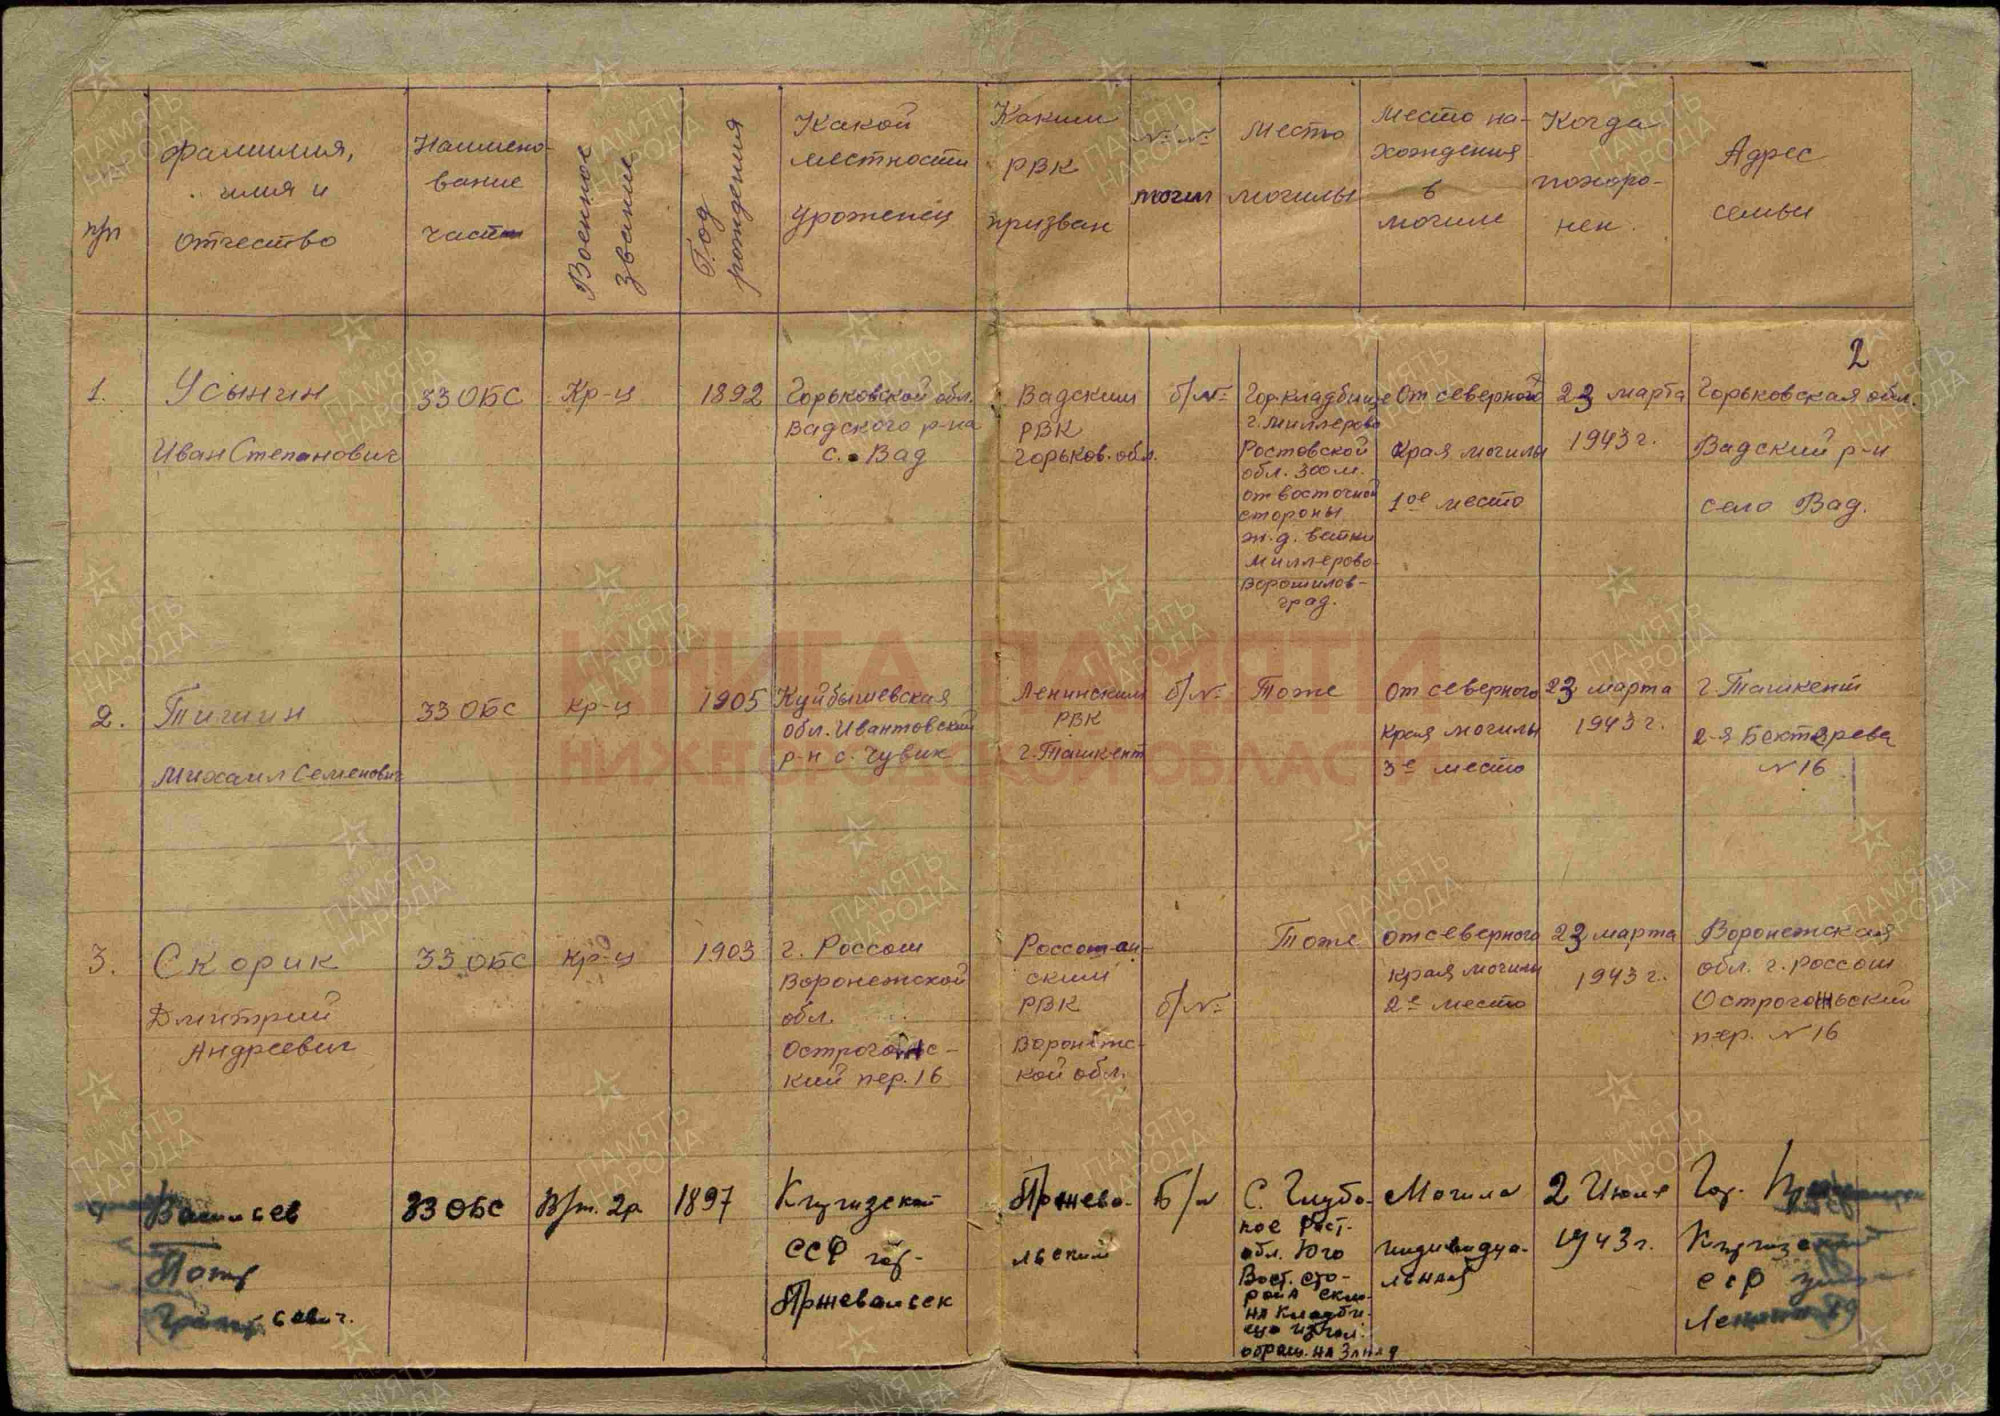 п/п
Фамилия,
имя и
отчество
Наимено-
вание
части
Военное
звание
Год
рождения
Какой
местности
уроженец
Каким
РВК
призван
№ №
могил
Место
могилы
Место на-
хождения
в
могиле
Когда
похоро-
нен.
Адрес
семьи
2
1.
Усынин
Иван Степанович
33 ОБС
Кр-ц
1892
Горьковской обл.
Вадского р-на
с. Вад
Вадским
РВК
Горьков. обл.
б/№
Гор. кладбище
г. Миллерово
Ростовской
обл. 300 м.
от восточной
стороны
ж.д. ветки
Миллерово-
Ворошилов-
град.
От северного
края могилы
1ое место
23 марта
1943 г.
Горьковская обл.
Вадский р-н
село Вад.
2.
Тигин
Михаил Семенович
33 ОБС
Кр-ц
1905
Куйбышевская
обл. Ивантовский
р-н с. Чувик
Ленинским
РВК
г. Ташкент
б/№
Тоже
От северного
края могилы
3е место
23 марта
1943 г.
г. Ташкент
2-я Бектерева
№ 16
3.
Скорик
Дмитрий
Андреевич
33 ОБС
Кр-ц
1903
г. Россош
Воронежской
обл.
Острогожс-
кий пер. 16
Россошан-
ским
РВК
Воронежс-
кой обл.
б/№
Тоже
От северного
края могилы
2е место
23 марта
1943 г.
Воронежская
обл. г. Россош
Острогожьский
пер. № 16
Васильев
Петр
33 ОБС
В/т. 2р
1897
Киргизской
ССР гор.
Пржевальск
Пржева-
льским
Б/н
С. Глубо-
кое Рост.
обл. Юго
Вост. сто-
рона села
на кладби-
ще
обращ. на Запад
Могила
индивидуа-
льная
2 Июля
1943 г.
Гор.
Киргизской
ССР
КНИГА ПАМЯТИ
НИЖЕГОРОДСКОЙ ОБЛАСТИ
ПАМЯТЬ
НАРОДА